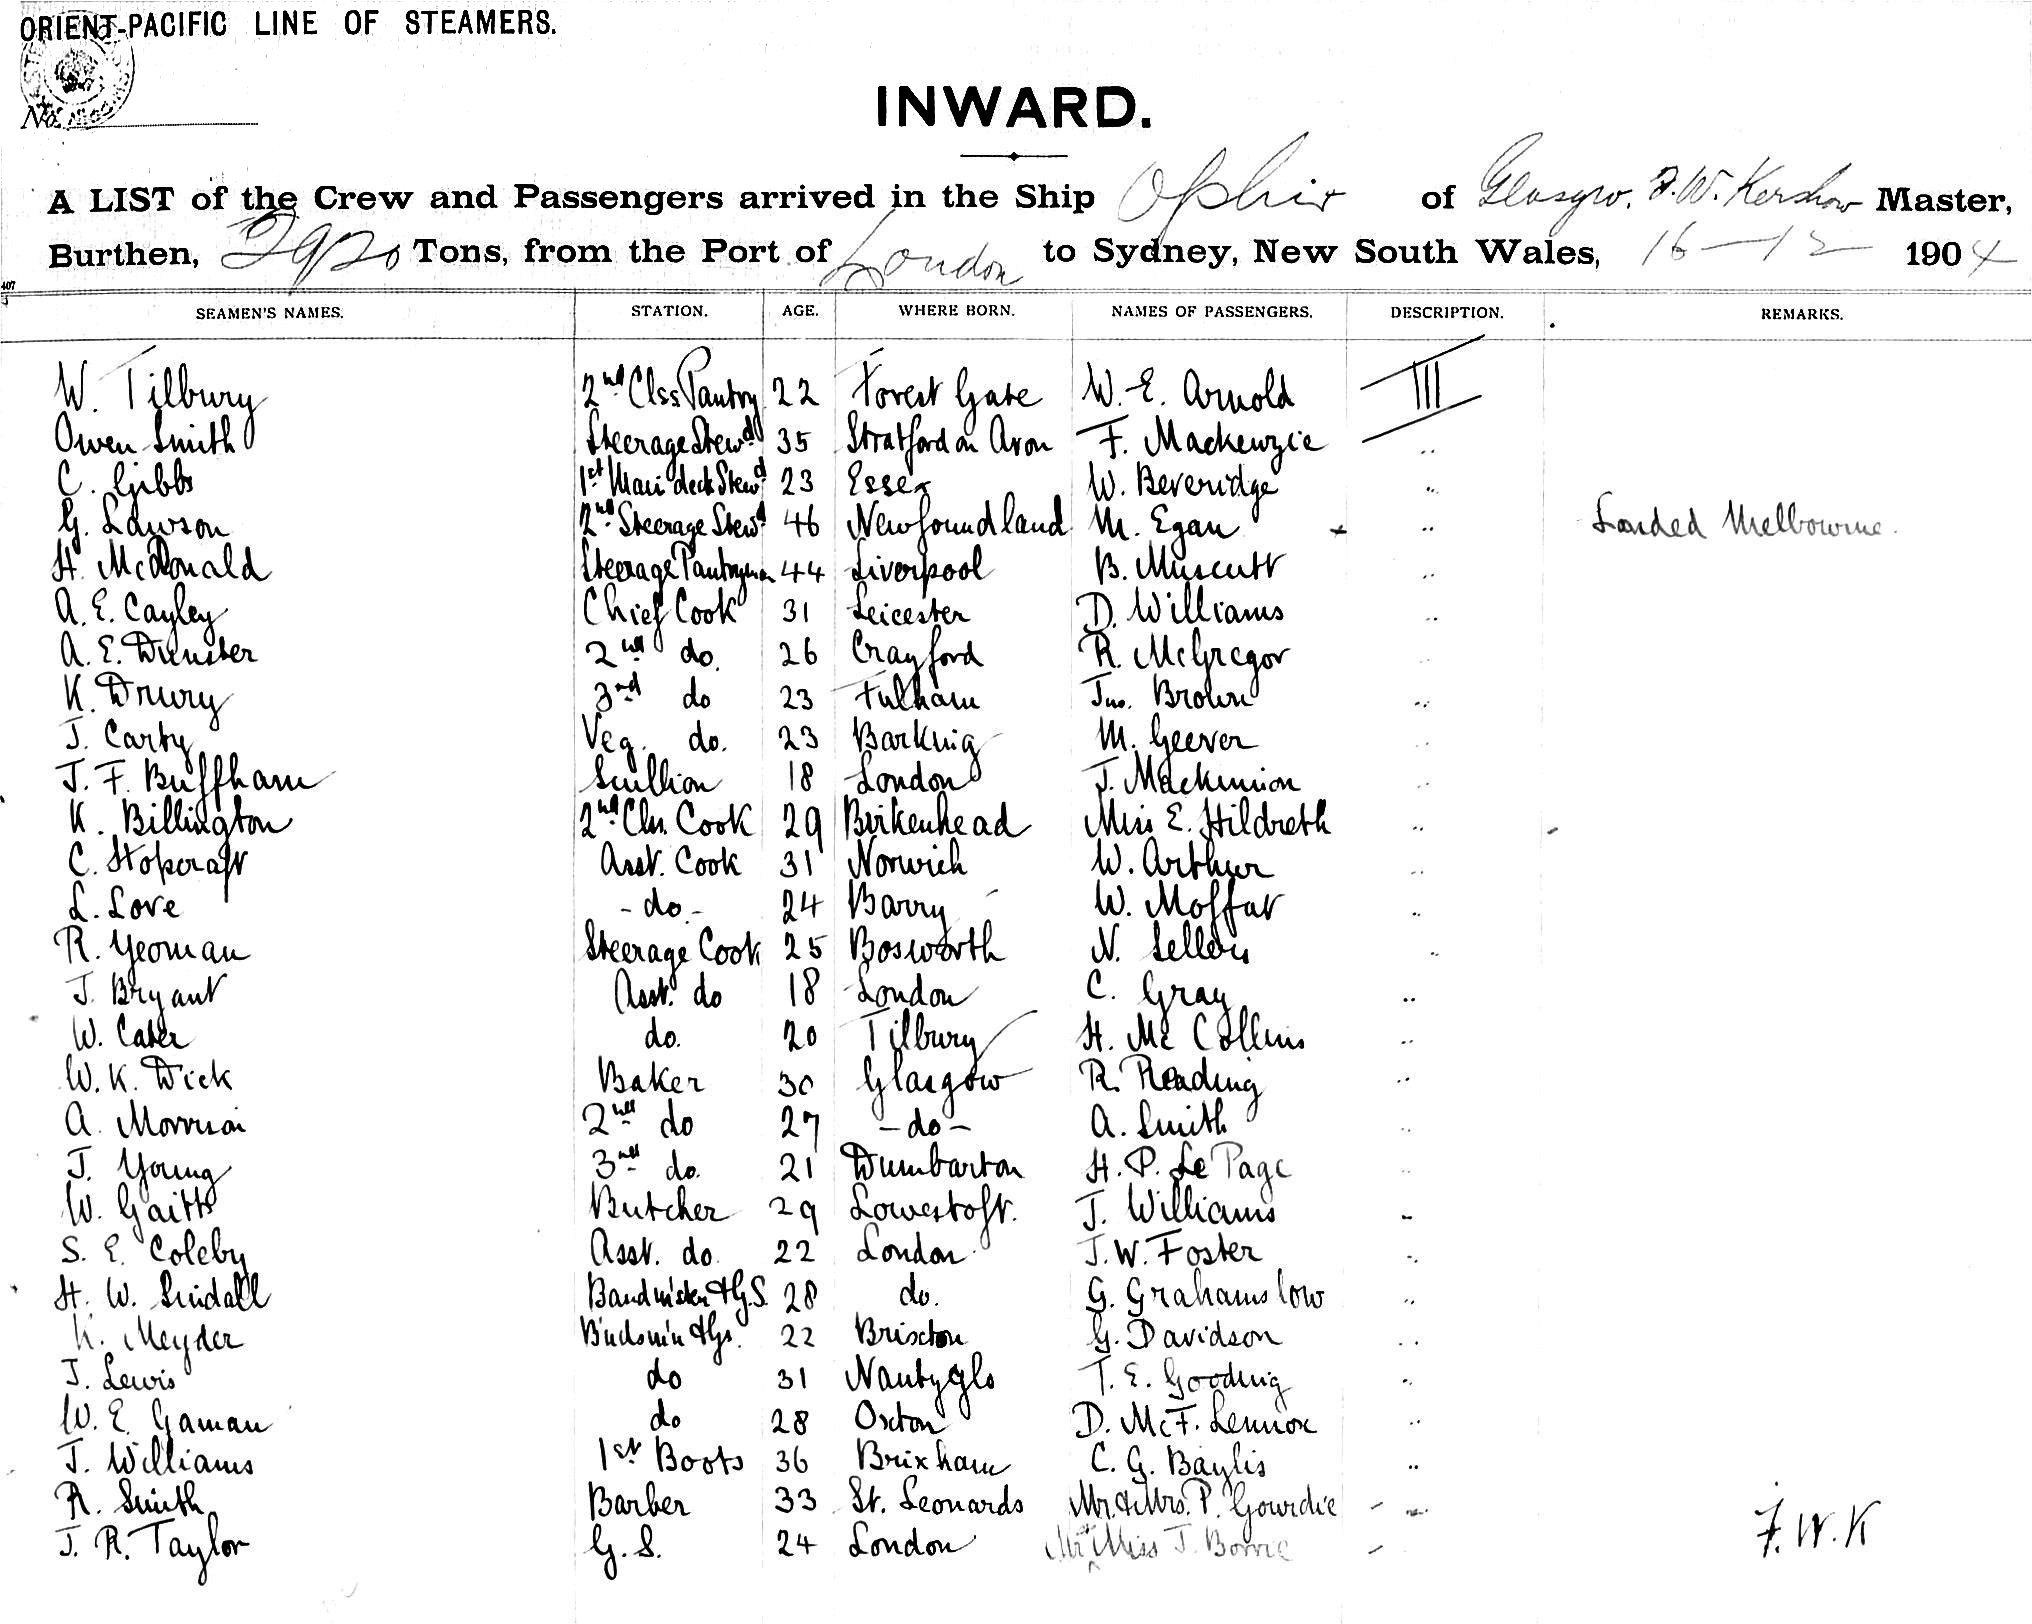 ORIENT-PACIFIC LINE OF STEAMERS.
No.
INWARD.
A LIST of the Crew and Passengers arrived in the Ship Ophir of Glasgow, F.W. Kershaw Master,
Burthen, Tons, from the Port of London to Sydney, New South Wales, 16-12 1904
407
SEAMEN'S NAMES. STATION. AGE. WHERE BORN. NAMES OF PASSENGERS. DESCRIPTION. REMARKS.
W. Tilbury 2nd Clss Pantry 22 Forest Gate W. E. Arnold III
Owen Smith Steerage Stewd 35 Stratford on Avon F. Mackenzie "
C. Gibbs 1st deck Stewd 23 Essex W. Beveridge "
G. Lawson 2nd Steerage Stewd 46 Newfoundland M. Egan x " Landed Melbourne.
H. McDonald Steerage Pantryman 44 Liverpool B. Muscutt "
A. E. Cayley Chief Cook 31 Leicester D. Williams "
A. E. Dunster 2nd do. 26 Crayford R. McGregor "
K. Drury 3rd do 23 Fulham Jno. Brown "
J. Carty Veg. do. 23 Barking M. Geever "
J. F. Buffham Scullion 18 London J. Mackinnon "
K. Billington 2nd Clss. Cook 29 Birkenhead Miss E. Hildreth "
C. Stopcraft Asst. Cook 31 Norwich W. Arthur "
L. Love - do - 24 Barry W. Moffat "
R. Yeoman Steerage Cook 25 Bosworth N. Sellors "
J. Bryant Asst. do 18 London C. Gray "
W. Cater do. 20 Tilbury H. Mc Collins "
W. K. Dick Baker 30 Glasgow R. Reading "
A. Morrison 2nd do 27 - do - A. Smith "
J. Young 3rd do. 21 Dumbarton H. P. Le Page "
W. Gaitts Butcher 29 Lowestoft. J. Williams "
S. E. Coleby Asst. do. 22 London J. W. Foster "
H. W. Sindall Bandm'ster & G.S. 28 do. G. Grahamslow "
K. Meyder B'ndsm'n & Gs. 22 Brixton G. Davidson "
J. Lewis do 31 Nantyglo T. E. Gooding "
W. E. Gaman do 28 Oxton D. McF. Lennox "
J. Williams 1st Boots 36 Brixham C. G. Baylis "
R. Smith Barber 33 St. Leonards Mr. & Mrs. P. Gourdie - "
J. R. Taylor G. S. 24 London Miss J. Borrie - F.W.K